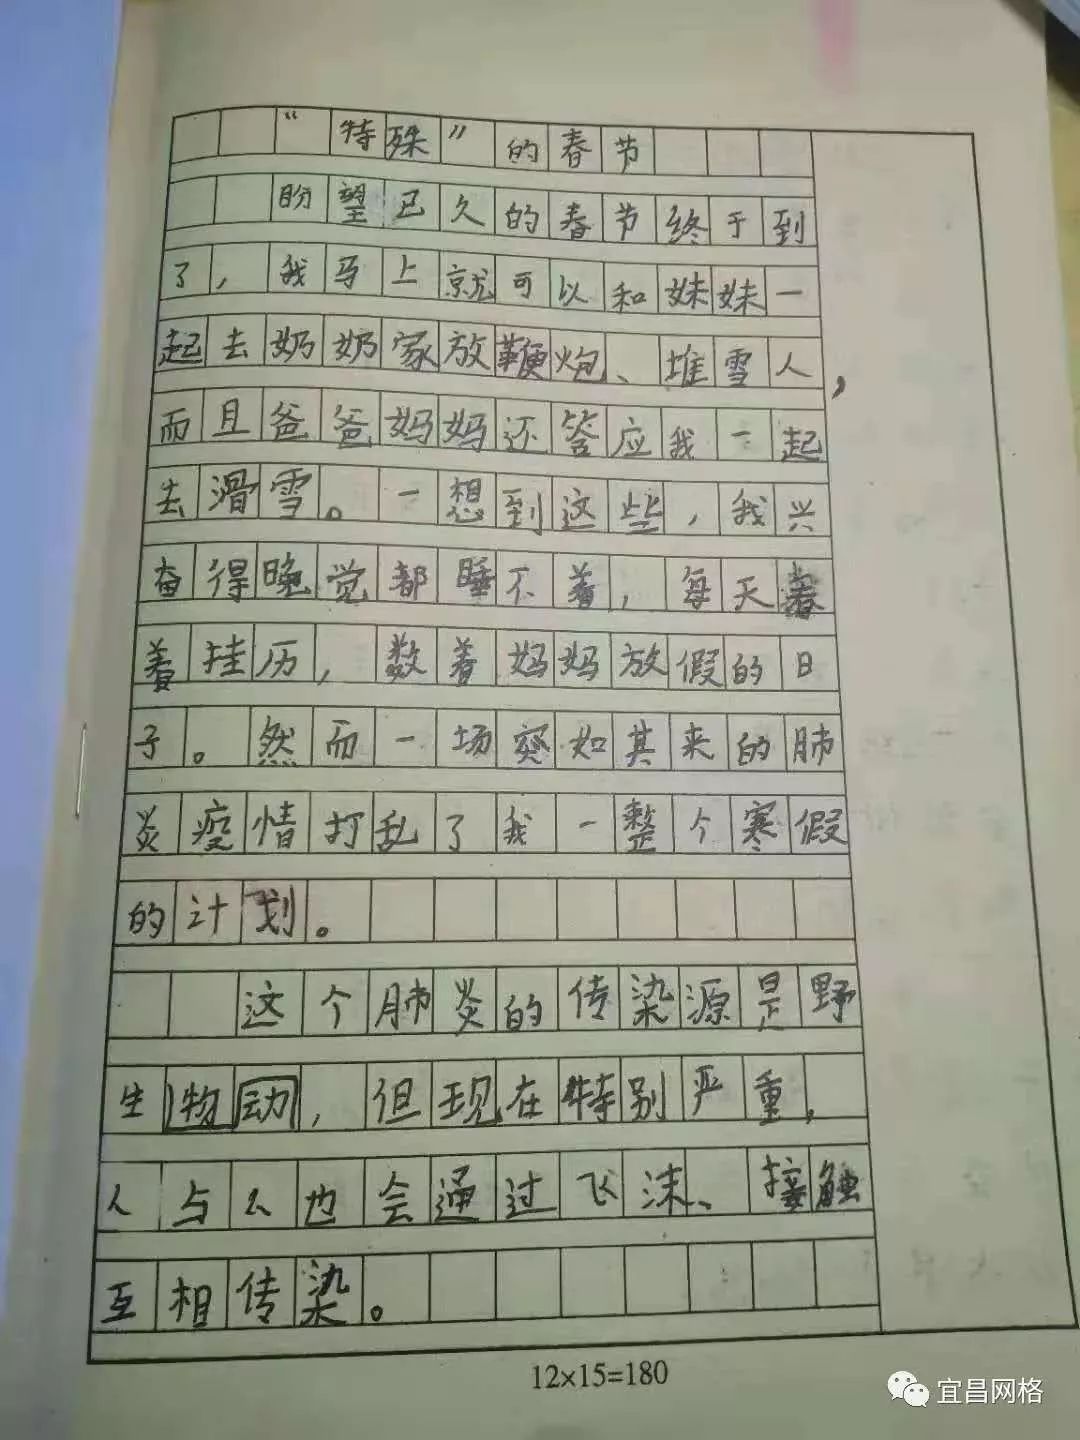 “特殊”的春节
盼望已久的春节终于到
了，我马上就可以和妹妹一
起去奶奶家放鞭炮、堆雪人，
而且爸爸妈妈还答应我一起
去滑雪。一想到这些，我兴
奋得晚觉都睡不着，每天看
着挂历，数着妈妈放假的日
子。然而一场突如其来的肺
炎疫情打乱了我一整个寒假
的计划。
这个肺炎的传染源是野
生物动，但现在特别严重，
人与人也会通过飞沫、接触
互相传染。
12×15=180
宜昌网格